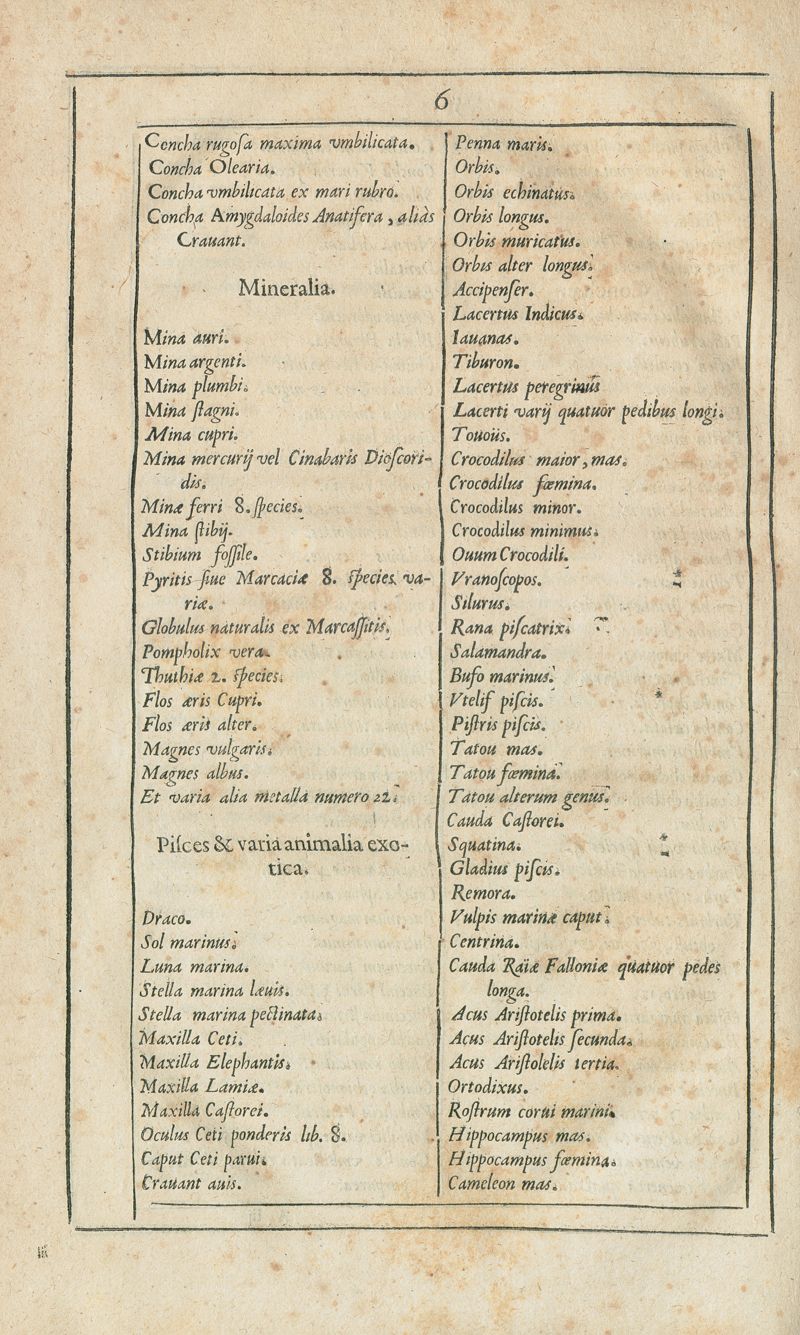 6
Concha rugoſa maxima vmbilicata.
Concha Olearia.
Concha vmbilicata ex mari rubro.
Concha Amygdaloides Anatifera, aliàs
Crauant.
Mineralia.
Mina auri.
Mina argenti.
Mina plumbi.
Mina ſtagni.
Mina cupri.
Mina mercurij vel Cinabaris Dioſcori-
dis.
Minæ ferri 8. ſpecies.
Mina ſtibij.
Stibium foſſile.
Pyritis ſiue Marcaciæ 8. ſpecies va-
riæ.
Globulus naturalis ex Marcaſſitis.
Pompholix vera.
Thuthiæ 2. ſpecies.
Flos æris Cupri.
Flos æris alter.
Magnes vulgaris.
Magnes albus.
Et varia alia metalla numero 22.
Piſces & varia animalia exo-
tica.
Draco.
Sol marinus.
Luna marina.
Stella marina læuis.
Stella marina pectinata.
Maxilla Ceti.
Maxilla Elephantis.
Maxilla Lamiæ.
Maxilla Caſtorei.
Oculus Ceti ponderis lib. 8.
Caput Ceti parui.
Crauant auis.
Penna maris.
Orbis.
Orbis echinatus.
Orbis longus.
Orbis muricatus.
Orbis alter longus.
Accipenſer.
Lacertus Indicus.
Iauanas.
Tiburon.
Lacertus peregrinus
Lacerti varij quatuor pedibus longi.
Touous.
Crocodilus maior, mas.
Crocodilus fœmina.
Crocodilus minor.
Crocodilus minimus.
Ouum Crocodili.
Vranoſcopos.
Silurus.
Rana piſcatrix.
Salamandra.
Bufo marinus.
Vtelif piſcis.
Piſtris piſcis.
Tatou mas.
Tatou fœmina.
Tatou alterum genus.
Cauda Caſtorei.
Squatina.
Gladius piſcis.
Remora.
Vulpis marinæ caput.
Centrina.
Cauda Raiæ Falloniæ quatuor pedes
longa.
Acus Ariſtotelis prima.
Acus Ariſtotelis ſecunda.
Acus Ariſtolelis tertia.
Ortodixus.
Roſtrum corui marini.
Hippocampus mas.
Hippocampus fœmina.
Cameleon mas.